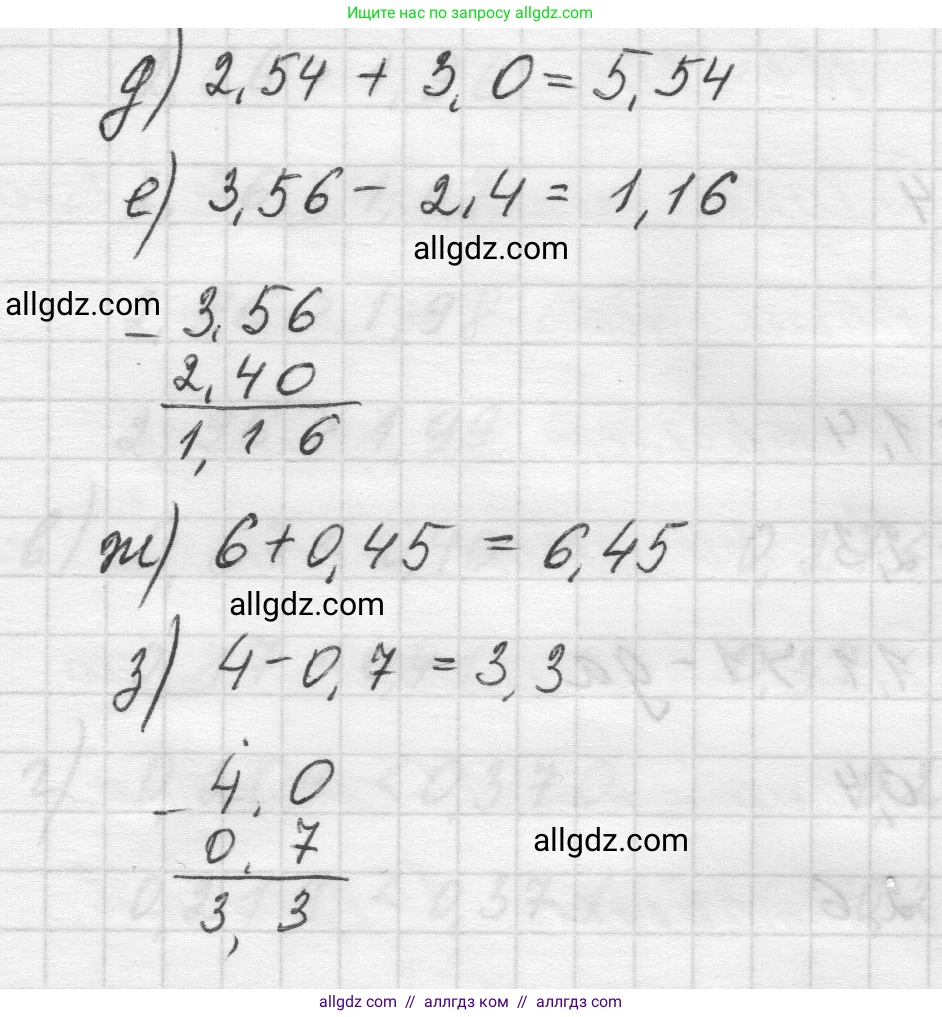 Ищите нас по запросу allgdz.com
д) 2,54 + 3,0 = 5,54
е) 3,56 - 2,4 = 1,16
allgdz.com
allgdz.com
- 3,56
2,40
1,16
ж) 6 + 0,45 = 6,45
allgdz.com
з) 4 - 0,7 = 3,3
- 4,0
0,7
allgdz.com
3,3
allgdz com // аллгдз ком // аллгдз com